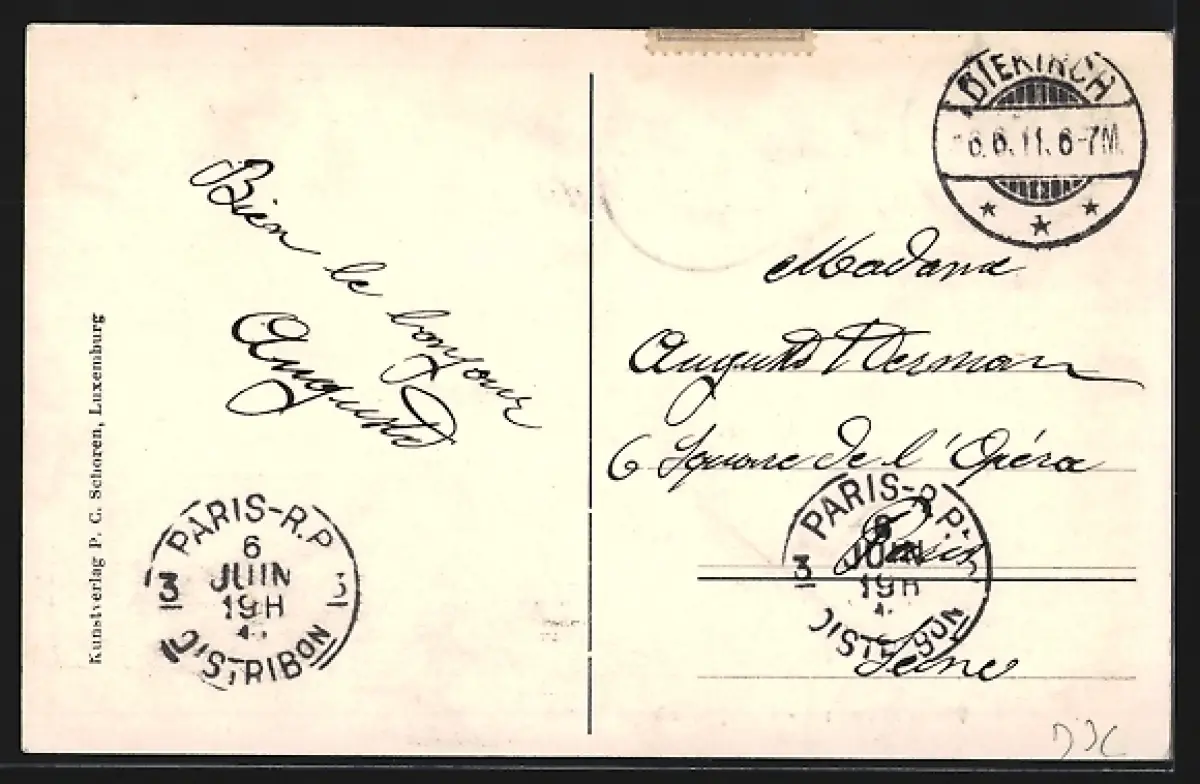 Kunstverlag P. C. Schoren, Luxemburg
Bien le bonjour
Auguste
PARIS-R.P
6
JUIN
19H
3 3
DISTRIBON
DIEKIRCH
6.6.11.6-7M.
Madame
Auguste Herman
6 Square de l'Opéra
Paris
Seine
PARIS-R.P.
6
JUIN
19H
3